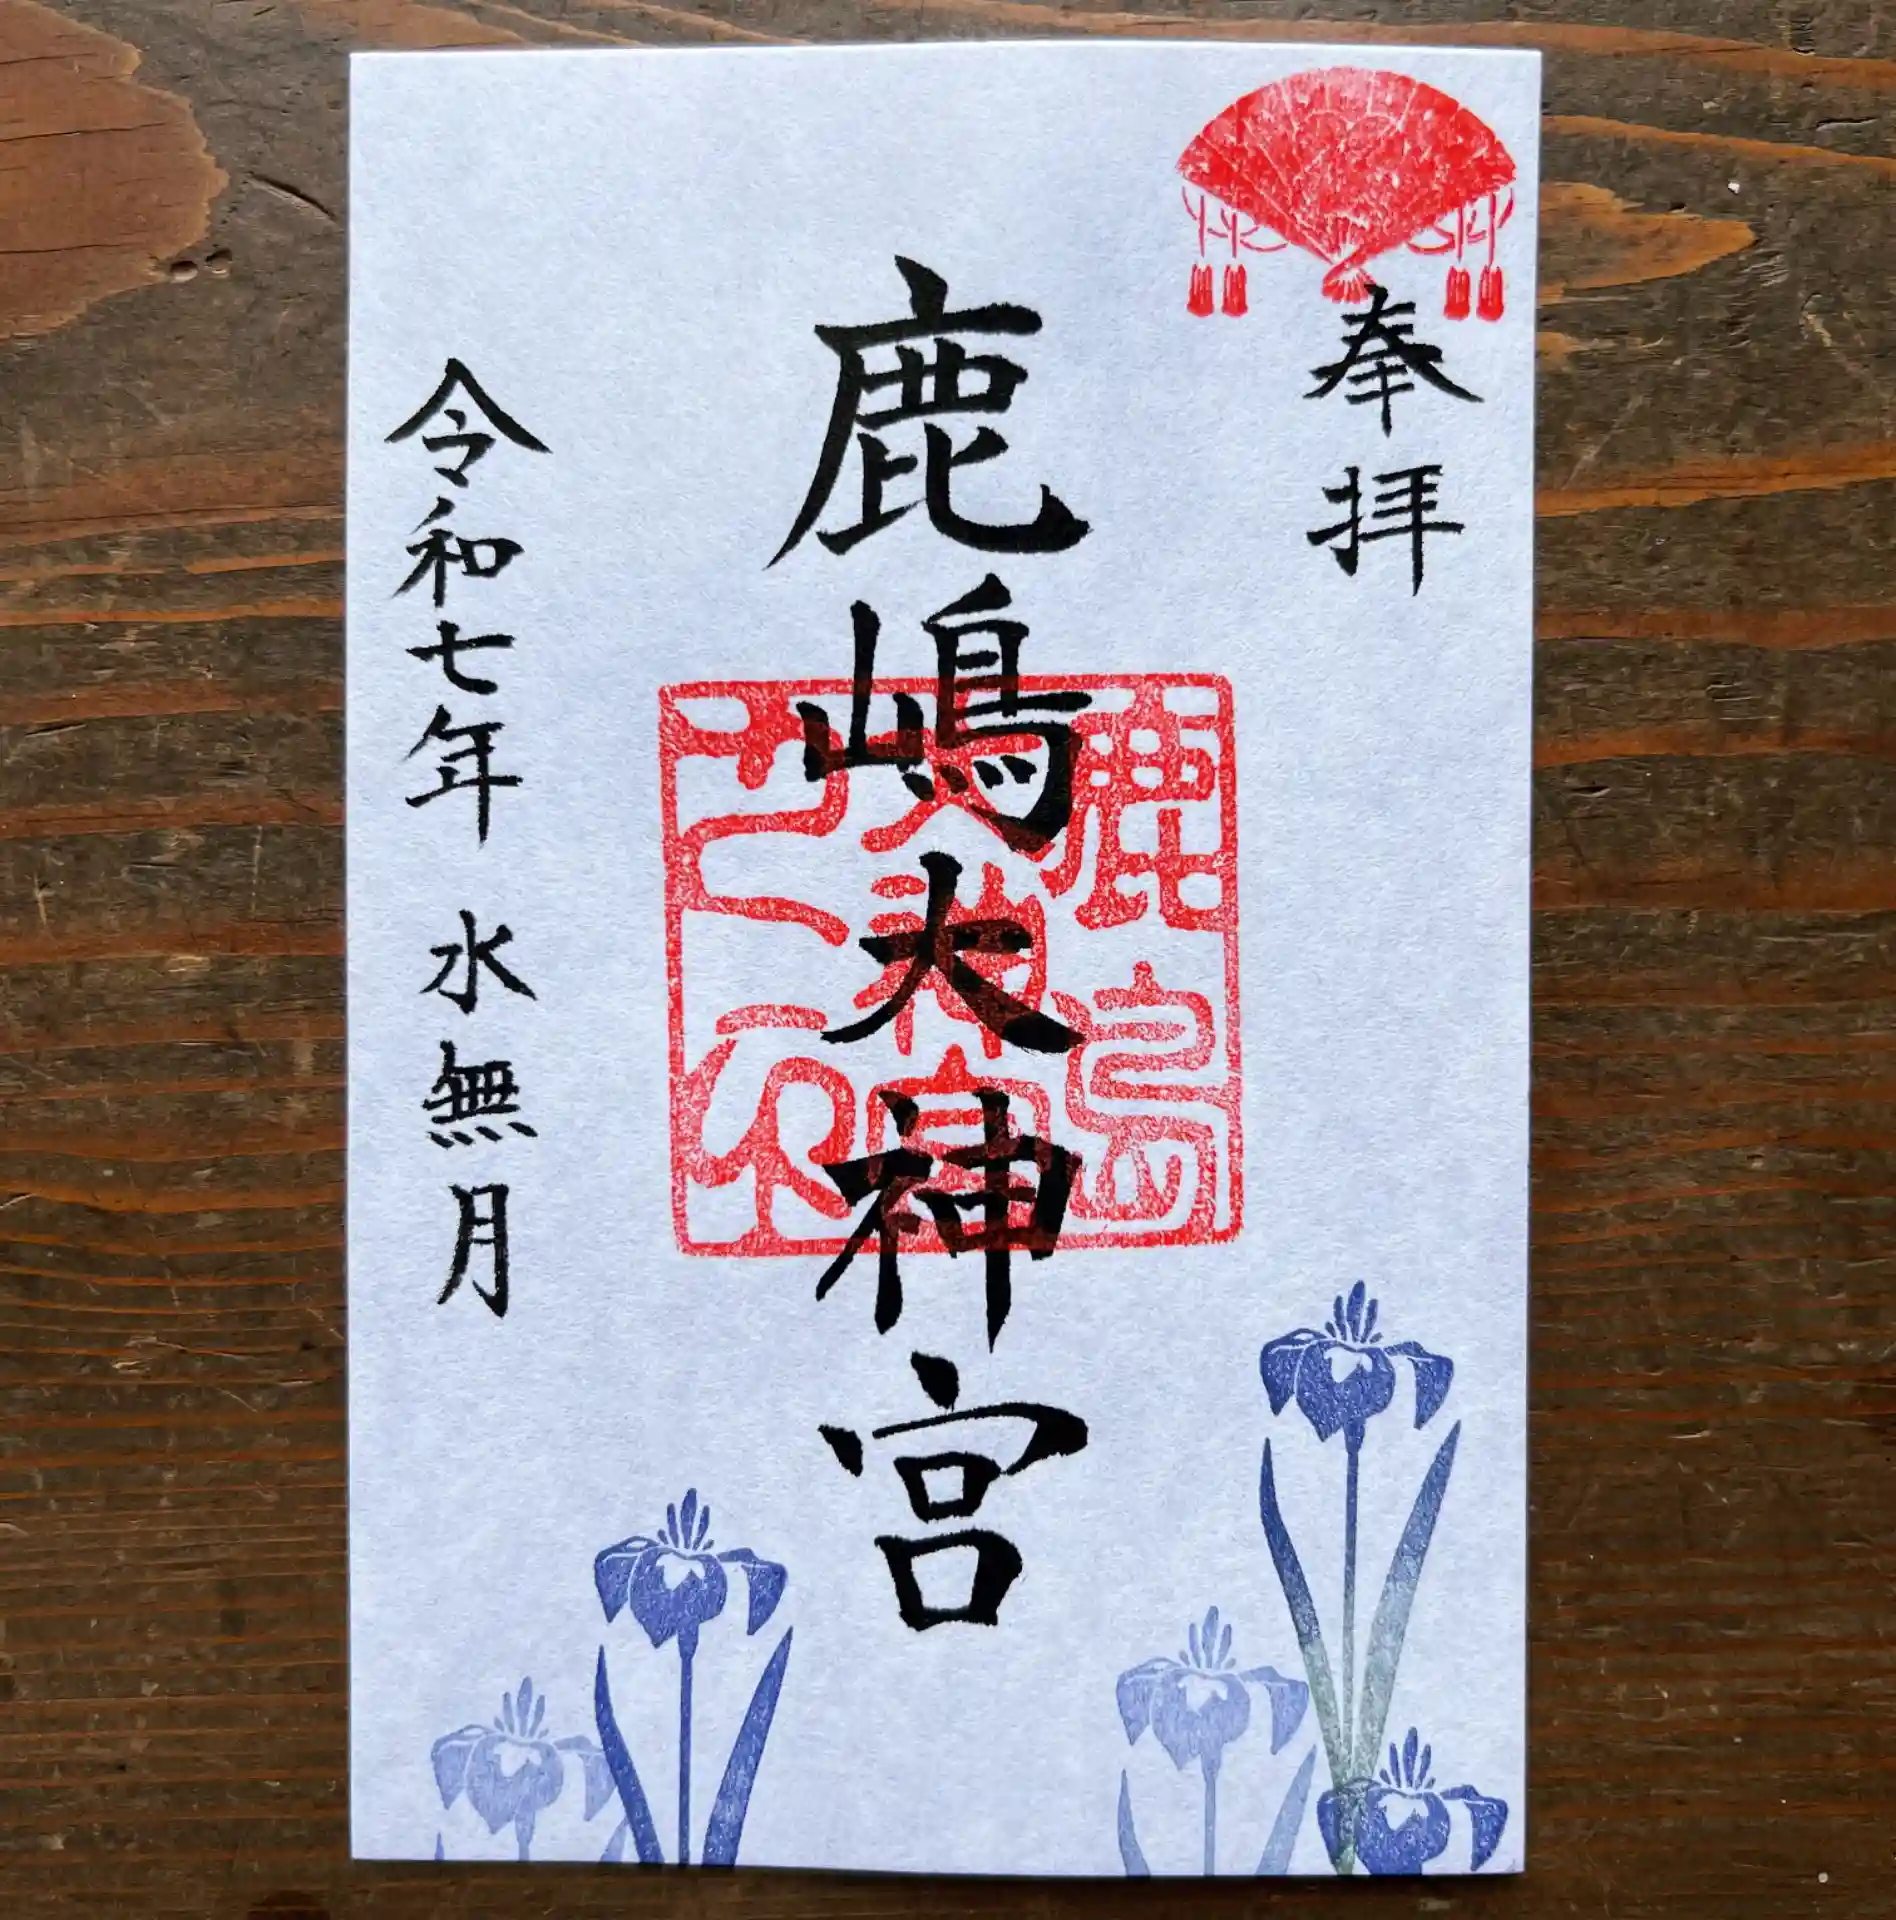 奉拝
鹿嶋大神宮
鹿島
大神宮
之印
令和七年 水無月